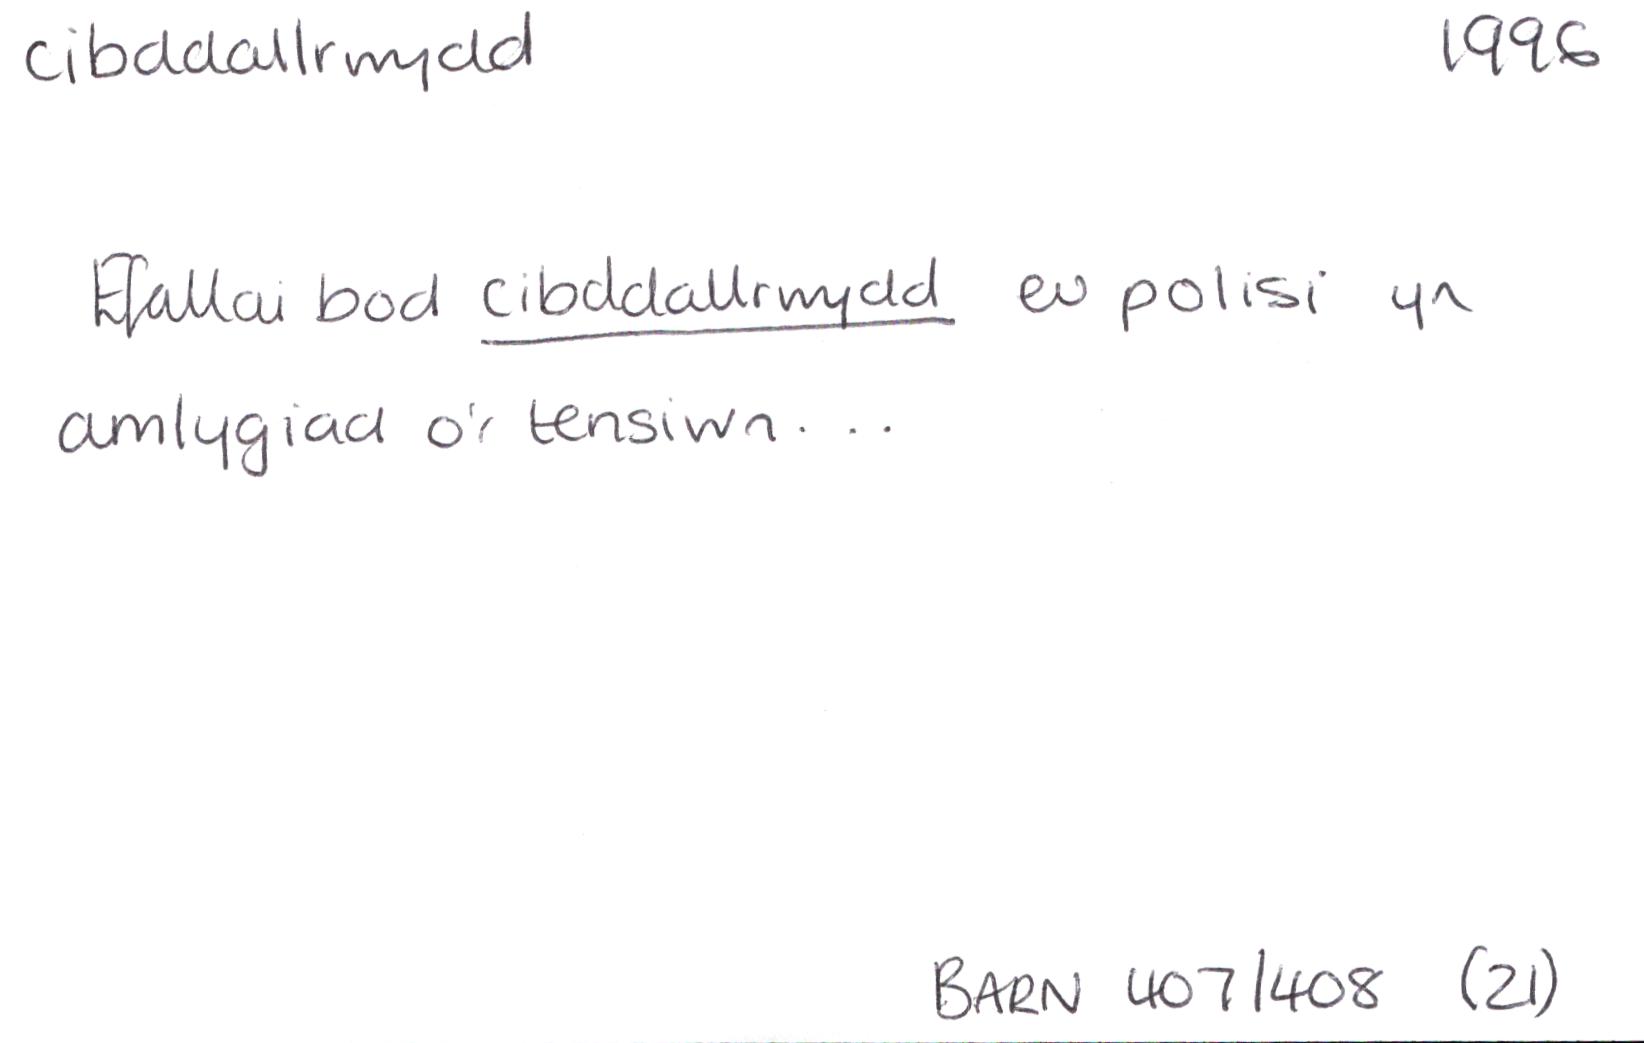 cibddallrwydd 1996
Efallai bod cibddallrwydd eu polisi yn
amlygiad o'r tensiwn....
BARN 407/408 (21)